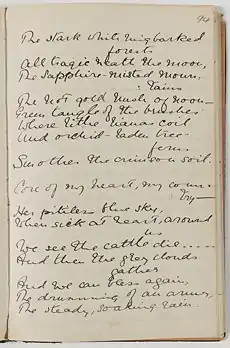 94
The stark white ringbarked
forests
All tragic 'neath the moon,
The sapphire-misted moun-
tains
The hot gold hush of noon—
Green tangle of the brushes
Where lithe lianas coil
And orchid-laden tree-
ferns
Smother the crimson soil.
Core of my heart, my coun-
try—
Her pitiless blue sky,
When sick at heart, around
us
We see the cattle die.....
And then the grey clouds
gather
And we can bless again,
The drumming of an army,
The steady, soaking rain.